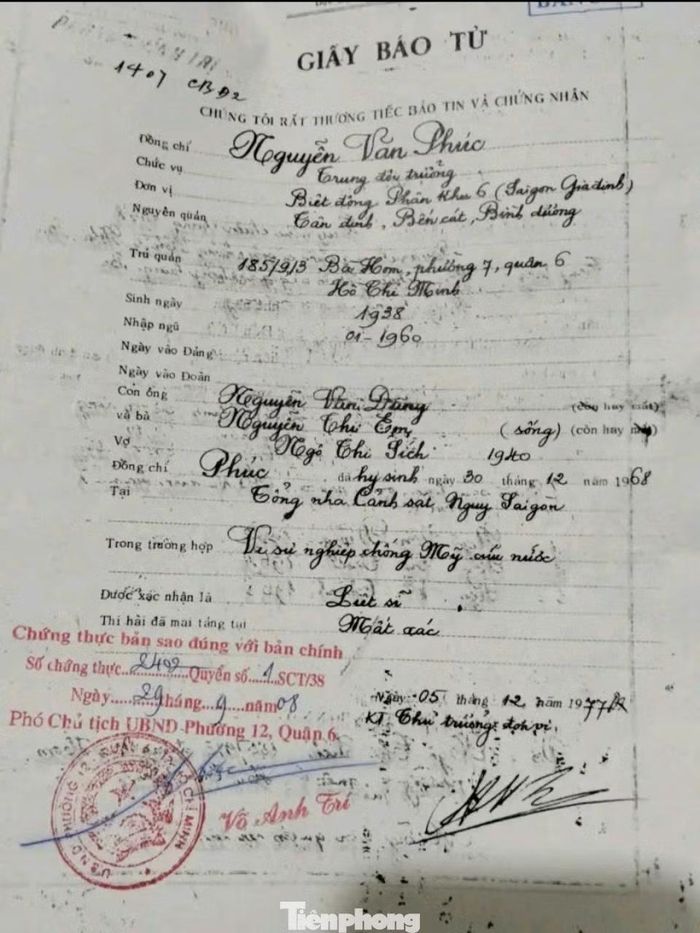 GIẤY BÁO TỬ
1407 CBĐ2
CHÚNG TÔI RẤT THƯƠNG TIẾC BÁO TIN VÀ CHỨNG NHẬN
Đồng chí Nguyễn Văn Phúc
Chức vụ Trung đội trưởng
Đơn vị Biệt động Phân khu 6 (Saigon Gia định)
Nguyên quán Tân định, Bến cát, Bình dương
Trú quán 185/9/3 Bà Hom, phường 7, quận 6
Hồ Chí Minh
Sinh ngày 1938
Nhập ngũ 01-1960
Ngày vào Đảng
Ngày vào Đoàn
Con ông Nguyễn Văn (còn hay mất)
và bà Nguyễn Thị Em (sống) (còn hay mất)
Vợ Ngô Thị Sích 1940
Đồng chí Phúc đã hy sinh ngày 30 tháng 12 năm 1968
Tại Tổng nha Cảnh sát Ngụy Saigon
Trong trường hợp Vì sự nghiệp chống Mỹ cứu nước
Được xác nhận là Liệt sĩ
Thi hài đã mai táng tại Mất xác
Chứng thực bản sao đúng với bản chính
Số chứng thực 2402 Quyển số 1 SCT/38
Ngày 29 tháng 9 năm 08
Phó Chủ tịch UBND Phường 12, Quận 6
Ngày 05 tháng 12 năm 1977
KT Thủ trưởng đơn vị
Võ Anh Trí
U.B.N.D PHƯỜNG 12
Tiênphong